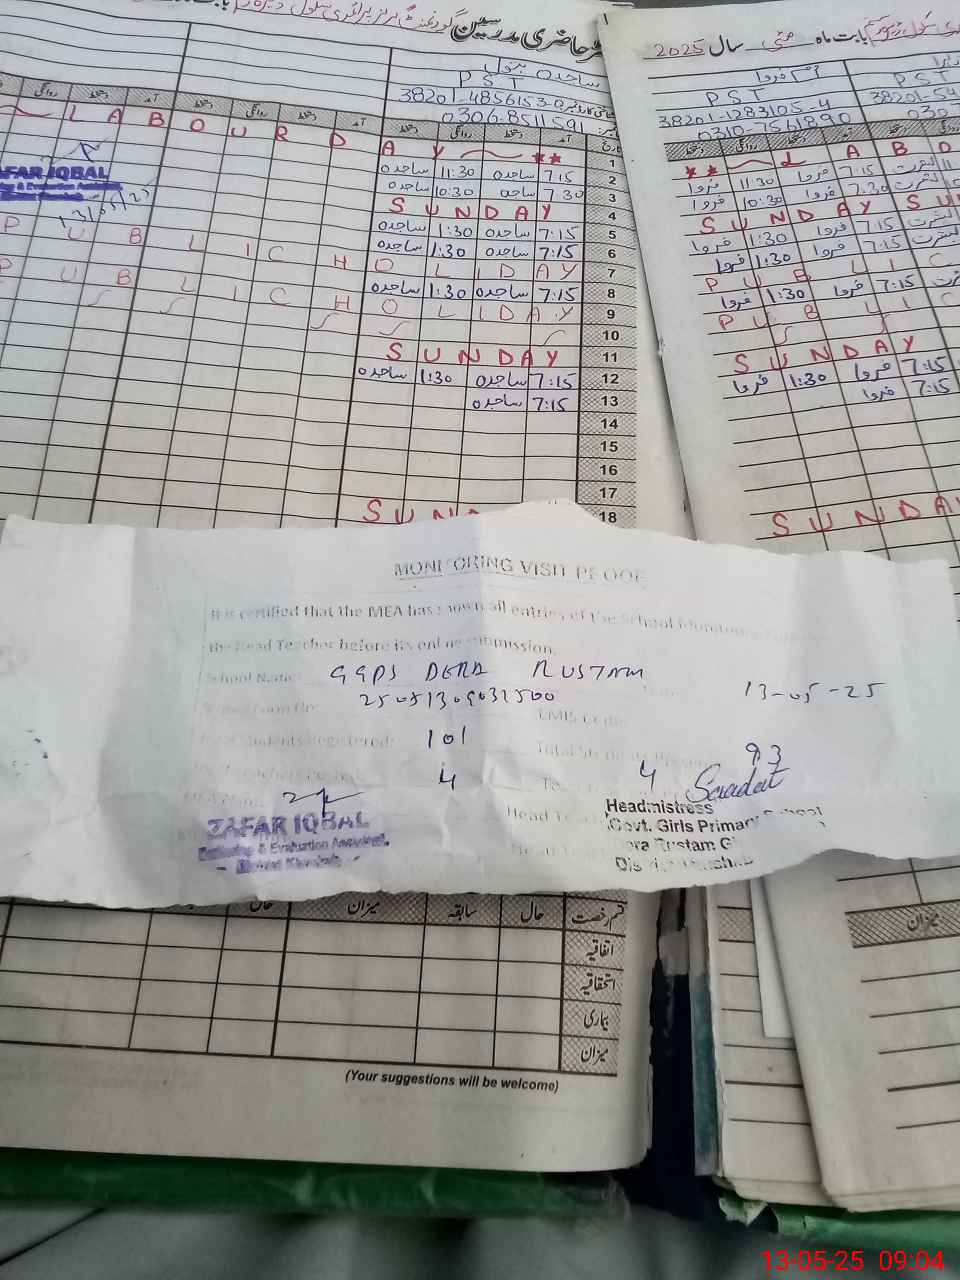 حاضری مدرسین
بابت ماہ مئی سال 2025
ساجدہ بتول
PST
38201-4856153-0
0306-8511591
PST
38201-1283105-4
0310-7561890
PST
38201-54
آمد روانگی دستخط آمد روانگی دستخط
LABOUR DAY **
** LABO
1
2 7:15 ساجدہ 11:30 ساجدہ
فروا 11:30 فروا 7:15
3 7:30 ساجدہ 10:30 ساجدہ
فروا 10:30 فروا 7:30
4 SUNDAY
SUNDAY SU
5 7:15 ساجدہ 1:30 ساجدہ
فروا 1:30 فروا 7:15
6 7:15 ساجدہ 1:30 ساجدہ
فروا 1:30 فروا 7:15
7 PUBLIC HOLIDAY
PUBLIC
8 7:15 ساجدہ 1:30 ساجدہ
فروا 1:30 فروا 7:15
9 PUBLIC HOLIDAY
PUBLIC
10
11 SUNDAY
SUNDAY
12 7:15 ساجدہ 1:30 ساجدہ
فروا 1:30 فروا 7:15
13 7:15 ساجدہ
فروا 7:15
14
15
16
17
18 SUN
SUNDAY
ZAFAR IQBAL
& Evaluation Assistant
13/05/25
MONITORING VISIT PROOF
It is certified that the MEA has shown all entries of the School Monitoring
the Head Teacher before its online submission.
School Name: GGPS DERA RUSTAM 13-05-25
25051309031500 EMIS Code:
Total Students Registered: 101 Total Students Present 93
4 4
Saadat
Head Teacher
ZAFAR IQBAL
Monitoring & Evaluation Assistant
District Khushab
Headmistress
Govt. Girls Primary School
Dera Rustam
District Khushab
قسم رخصت حال سابقہ میزان حال
میزان
اتفاقیہ
استحقاقیہ
بیماری
میزان
(Your suggestions will be welcome)
13-05-25 09:04